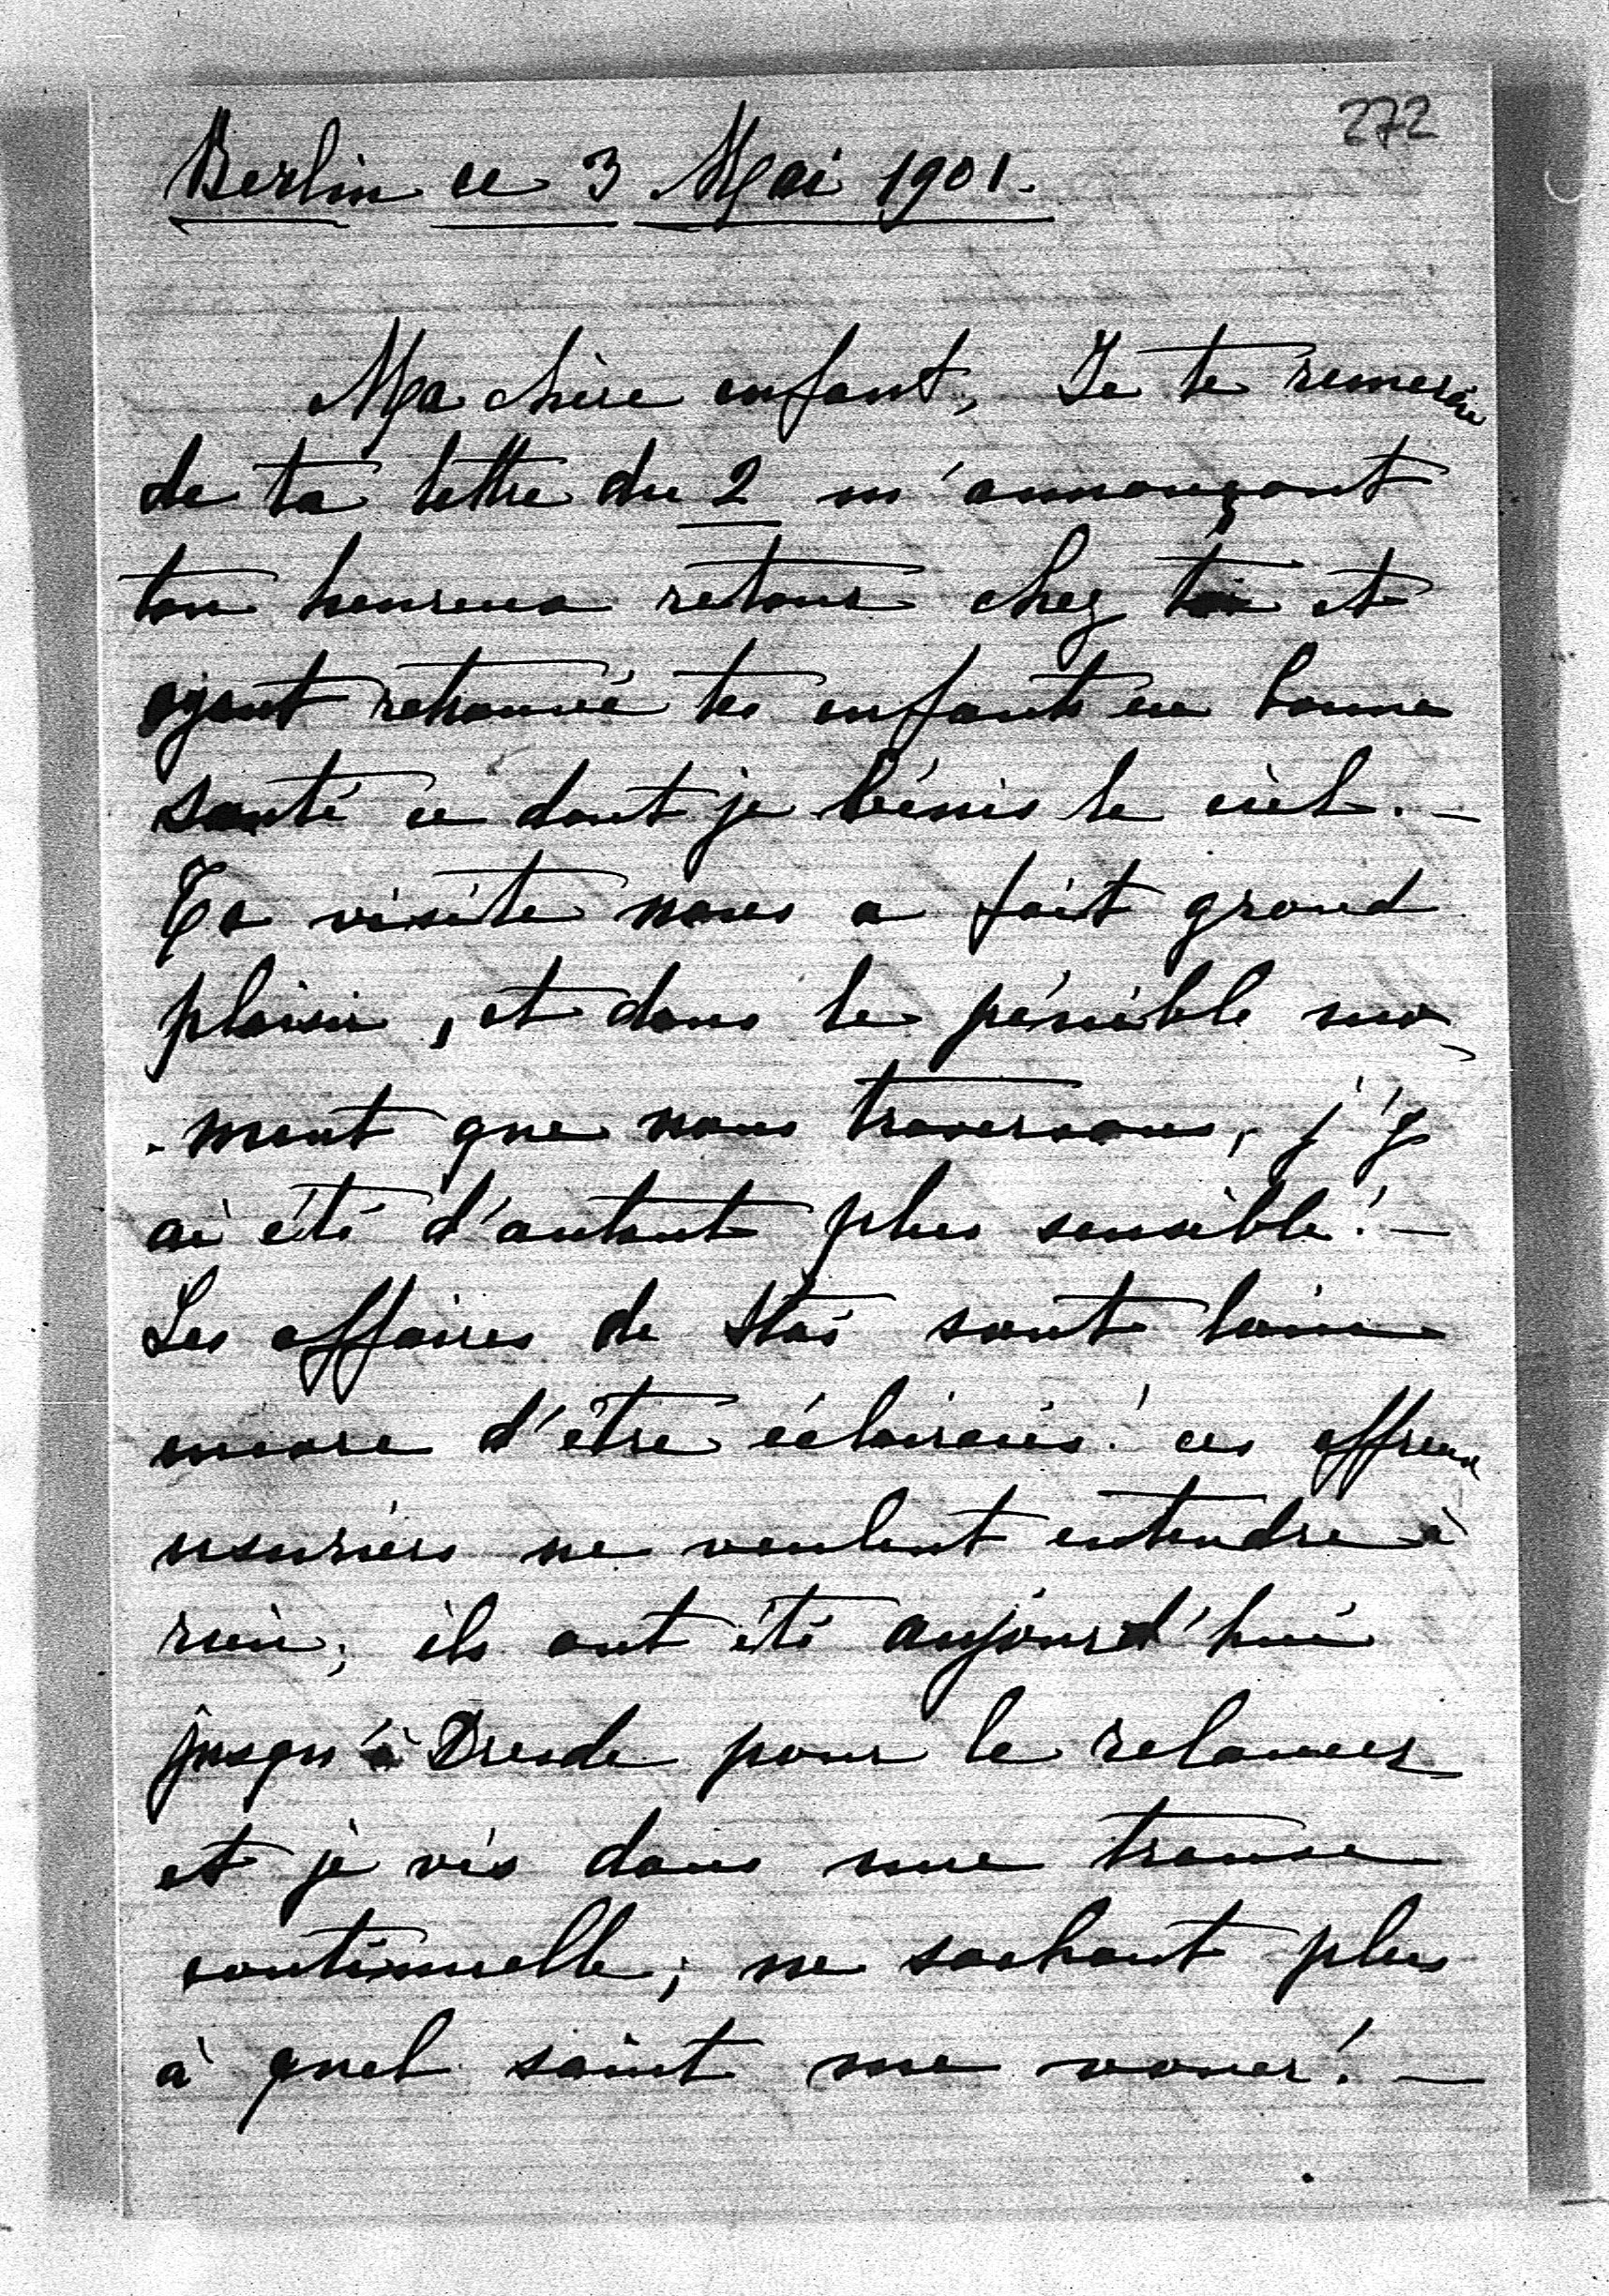 272
Berlin ce 3 Mai 1901.
Ma chère enfant, Je te remercie
de ta lettre du 2 m'annonçant
ton heureux retour chez toi et
ayant retrouvé tes enfants en bonne
santé ce dont je bénis le ciel. —
Ta visite nous a fait grand
plaisir, et dans le pénible mo-
-ment que nous traversons, j'y
ai été d'autant plus sensible! —
Les affaires de Stas sont loin
encore d'être éclaircies! ces affreux
usuriers ne veulent entendre à
rien; ils ont été aujourd'hui
jusqu'à Dresde pour le relancer
et je vis dans une transe
continuelle; ne sachant plus
à quel saint me vouer! —